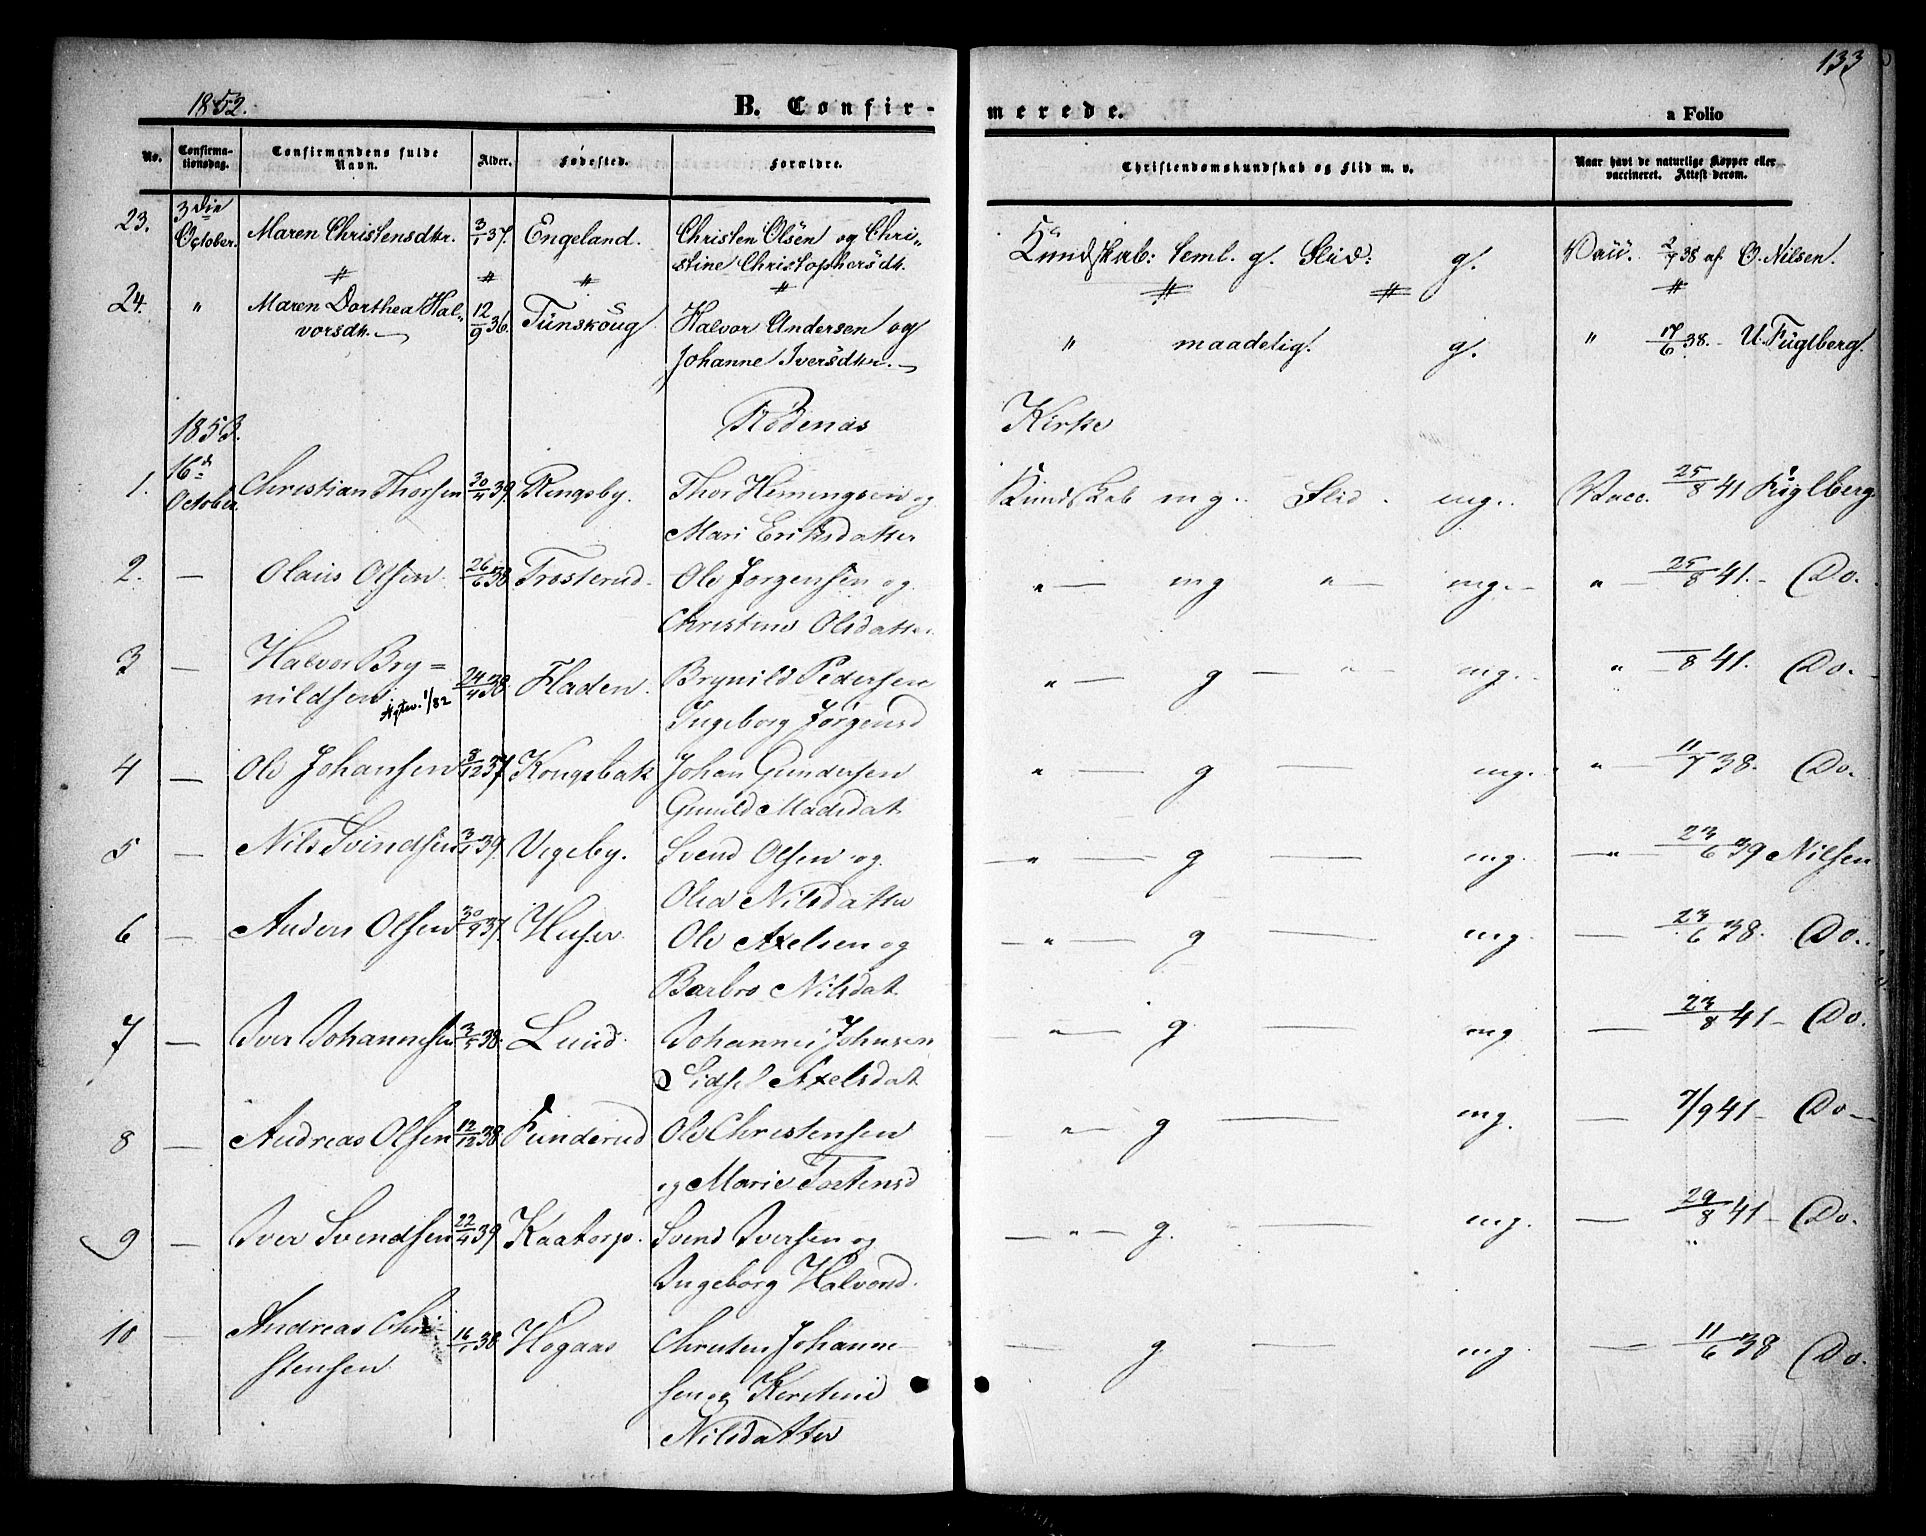 133
1852.
B. Confir-
merede.
a Folio
No.
Confirma-
tionsdag.
Confirmandens fulde
Navn.
Alder.
Fødested.
Forældre.
Christendomskundskab og Flid m. v.
Naar havt de naturlige Kopper eller
vaccineret. Attest derom.
23. 3die October. Maren Christensdtr. 3/1 37. Engeland. Christen Olsen og Chri„ Kundskab: teml. g. Flid: g. Vacc. 2/7 38 af O. Nilsen.
stine Christophersdt.
24. " Maren Dorthea Hal„ 12/9 36. Tunskoug Halvor Andersen og " maadelig. g. " 17/6 38. U. Fuglberg.
vorsdt. Johanne Iversdtr.
1853. Rødenæs Kirke
1. 16d October. Christian Thorsen 20/4 39. Ringsby. Thor Hemingsen og Kundskab mg. Flid mg. Vacc. 25/8 41 Fuglberg
Mari Eriksdatter
2. — Olaus Olsen 26/6 38 Trosterud. Ole Jørgensen og " — mg " — mg. " — 25/8 41. Do.
Christine Olsdatter
3 — Halvor Bry= 24/4 38. Fladen. Brynild Pedersen " — g — " — mg. " —/8 41. Do.
nildsen. 1/82 Ingeborg Jørgensd
4 — Ole Johansen 8/12 37 Kongsbak Johan Gundersen " — g — mg. " — 11/7 38. Do.
Gunild Madsdat.
5 — Nils Svendsen 3/1 39. Vegeby. Svend Olsen og — " — g — mg. — " — 23/6 39 Nilsen
Olea Nilsdatter
6 — Anders Olsen 30/9 37. Huser Ole Axelsen og — " — g — mg. — 23/6 38. Do.
Barbro Nilsdat.
7 — Iver Johannesen 3/5 38. Lund. Johannes Johnsen — " — g. — mg — 23/8 41 — Do.
Sidsel Axelsdat
8 — Andreas Olsen 12/12 38 Funderud Ole Christensen — " — g — mg. — 7/9 41 — Do —
og Marie Tostensd
9 — Iver Svendsen 22/4 39 Kaatorp. Svend Iversen og — " — g. — mg. — 29/8 41 — Do.
Ingeborg Halvorsd.
10 — Andreas Chri- 16/1 38 Høgaas Christen Johanne — g — mg. — 11/6 38 Do.
stensen sen og Kerstine
Nilsdatter